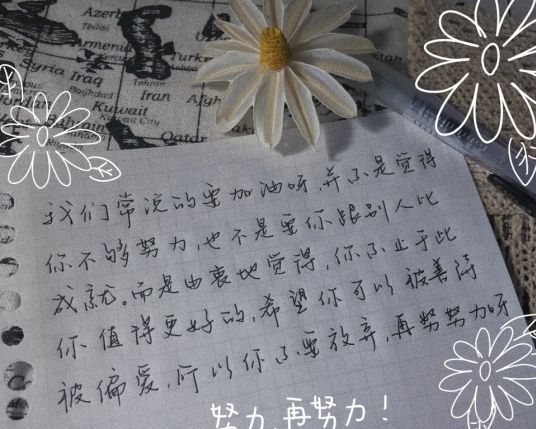 Azerbaijan
Tbilisi
Armenia
Turkm
Syria Iraq
Tehran
Baghdad
Iran
Afgh
Jordan
Kuwait
Kuwait City
Qatar
我们常说的要加油呀，并不是觉得
你不够努力，也不是要你跟别人比
成就。而是由衷地觉得，你不止于此
你值得更好的，希望你可以被善待
被偏爱，所以你不要放弃，再努努力呀
努力，再努力！